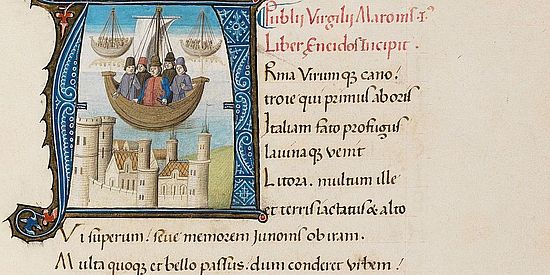 Publii Virgilii Maronis
Liber Eneidos Incipit.
Arma Virumqꝫ cano!
troie qui primus aboris
Italiam fato profugus
lauinaqꝫ venit
Litora. multum ille
et terris iactatus & alto
Vi superum! seue memorem Iunonis ob iram.
Multa quoqꝫ et bello passus. dum conderet vrbem!